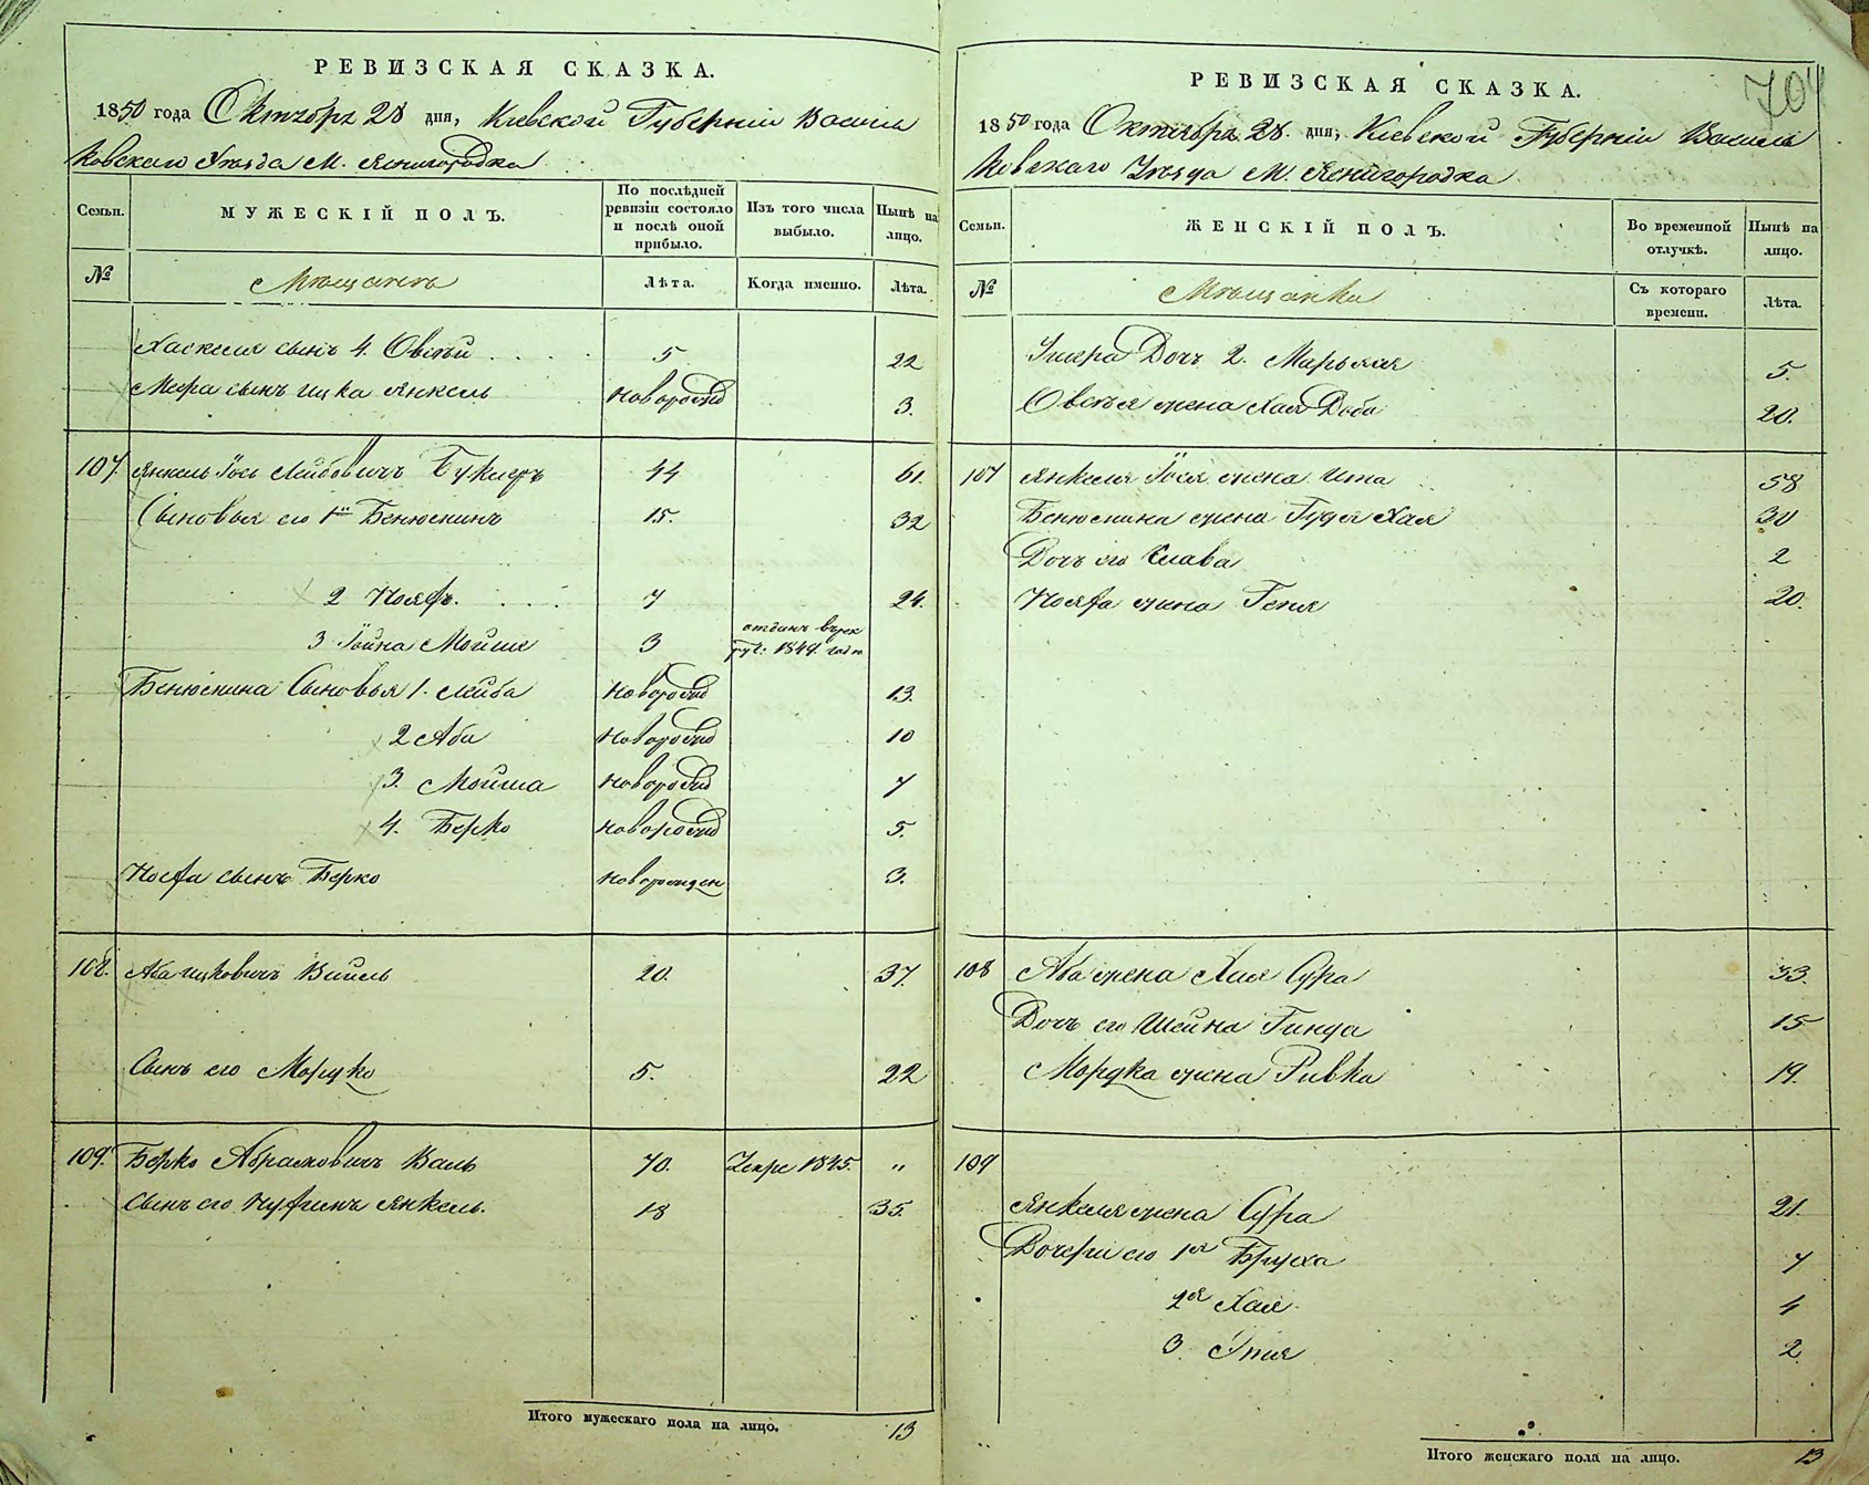 РЕВИЗСКАЯ СКАЗКА.
1850 года Октября 28 дня, Кіевской Губерніи Василь
ковскаго Уѣзда М. Яснигородка
Семьи.
МУЖЕСКІЙ ПОЛЪ.
По послѣдней ревизіи состояло и послѣ оной прибыло.
Изъ того числа выбыло.
Нынѣ на лицо.
№
Мѣщане
Лѣта.
Когда именно.
Лѣта.
Хаскеля сынъ 4. Овсѣй 5 22
сынъ Ицка Янкель новорожд 3.
107. Янкель Іось Лейбовичъ 44 61.
Сыновья его 1й Бенюминъ 15. 32
2 Ноях. 7 24.
3 Іойна Мойше 3 отданъ въ рек
рут: 1849. году
Бенюмина Сыновья 1. Лейба новорожд 13.
2 Аба новорожд 10
3. Мойша новорожд 7
4. Берко новорожд 5.
сынъ Берко новорожден 3.
108. Аба Ицковичъ 20. 37.
Сынъ его Мордко 5. 22
109. Берко Абрамовичъ Валь 70. Умре 1845. "
Сынъ его Янкель. 18 35.
Итого мужескаго пола на лицо. 13
704
РЕВИЗСКАЯ СКАЗКА.
1850 года Октября 28. дня, Кіевской Губерніи Василь
ковскаго Уѣзда М. Яснигородка
Семьи.
ЖЕНСКІЙ ПОЛЪ.
Во временной отлучкѣ.
Нынѣ на лицо.
№
Мѣщанки
Съ котораго времени.
Лѣта.
Дочь 2. Марьяся 5.
Овсѣя жена Хая Доба 20.
107 Янкеля Іося жена Ита 58
Бенюмина жена Гудя Хая 30
Дочь его Слава 2
жена Геня 20.
108 Аба жена Хая Сура 33.
Дочь его Шейна Гинда 15
Мордка жена Ривка 19.
109
Янкеля жена Сура 21.
Дочери его 1я Бруха 7
2я Хая 4
3. 2
Итого женскаго пола на лицо. 13